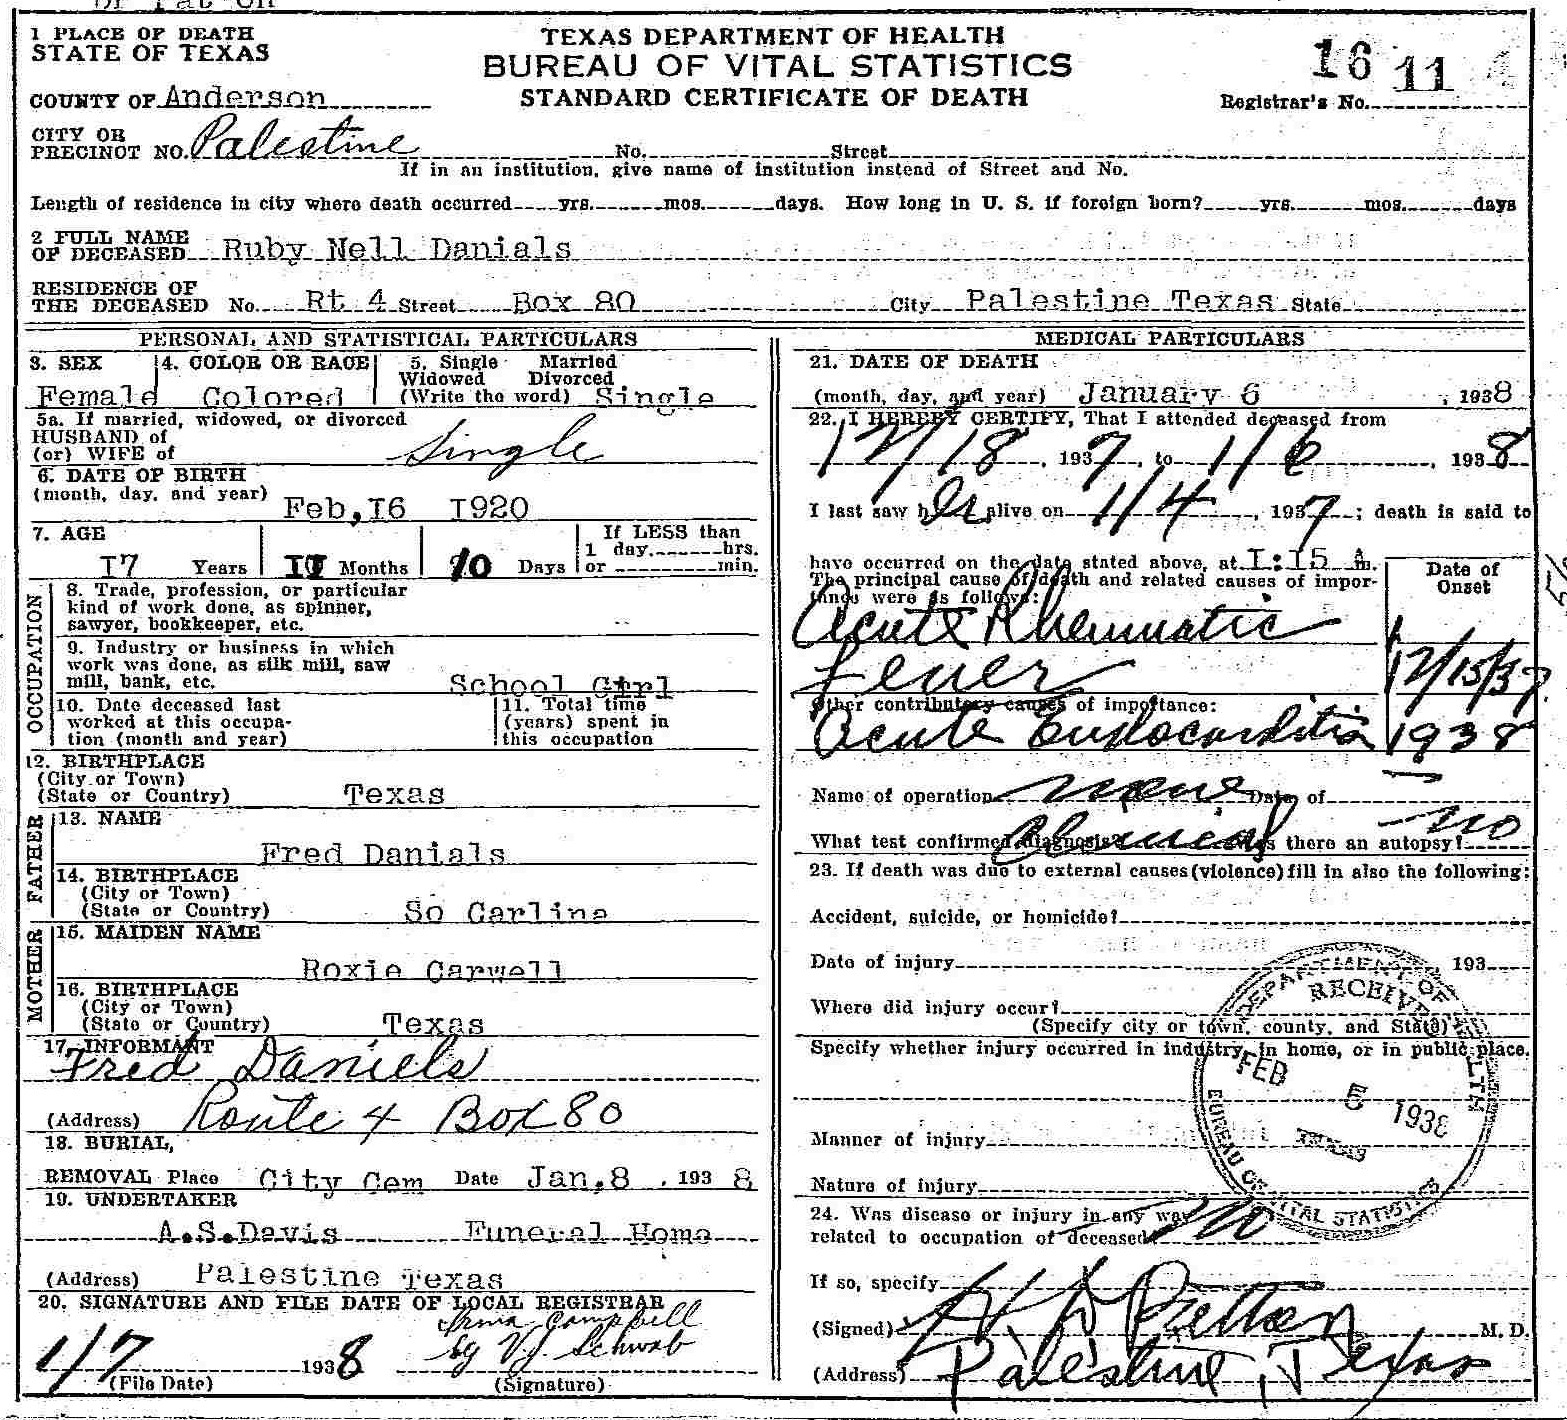 1 PLACE OF DEATH
STATE OF TEXAS
TEXAS DEPARTMENT OF HEALTH
BUREAU OF VITAL STATISTICS
STANDARD CERTIFICATE OF DEATH
16 11
Registrar's No.
COUNTY OF Anderson
CITY OR
PRECINCT NO. Palestine No. Street
If in an institution, give name of institution instead of Street and No.
Length of residence in city where death occurred yrs. mos. days. How long in U. S. if foreign born? yrs. mos. days
2 FULL NAME
OF DECEASED Ruby Nell Danials
RESIDENCE OF
THE DECEASED No. Rt 4 Street Box 80 City Palestine Texas State
PERSONAL AND STATISTICAL PARTICULARS
3. SEX 4. COLOR OR RACE 5. Single Married
Widowed Divorced
Female Colored (Write the word) Single
5a. If married, widowed, or divorced
HUSBAND of
(or) WIFE of Single
6. DATE OF BIRTH
(month, day, and year) Feb,I6 I920
7. AGE If LESS than
1 day hrs.
I7 Years Months 10 Days or min.
OCCUPATION
8. Trade, profession, or particular
kind of work done, as spinner,
sawyer, bookkeeper, etc. --
9. Industry or business in which
work was done, as silk mill, saw
mill, bank, etc. School Girl
10. Date deceased last
worked at this occupa-
tion (month and year)
11. Total time
(years) spent in
this occupation
12. BIRTHPLACE
(City or Town)
(State or Country) Texas
FATHER
13. NAME
Fred Danials
14. BIRTHPLACE
(City or Town)
(State or Country) So Carlina
MOTHER
15. MAIDEN NAME
Roxie Carwell
16. BIRTHPLACE
(City or Town)
(State or Country) Texas
17. INFORMANT
Fred Daniels
(Address) Route 4 Box 80
18. BURIAL,
REMOVAL Place City Cem Date Jan,8 , 193 8
19. UNDERTAKER
A.S.Davis Funeral Home
(Address) Palestine Texas
20. SIGNATURE AND FILE DATE OF LOCAL REGISTRAR
Irma Campbell
1/7 1938 by VJ Schwab
(File Date) (Signature)
MEDICAL PARTICULARS
21. DATE OF DEATH
(month, day, and year) January 6 , 1938
22. I HEREBY CERTIFY, That I attended deceased from
12/18, 1937, to 1/6, 1938
I last saw her alive on 1/4, 1937; death is said to
have occurred on the date stated above, at I:I5 A m.
The principal cause of death and related causes of impor-
tance were as follows:
Date of
Onset
Acute Rheumatic
Fever 12/15/37
Other contributory causes of importance:
Acute Endocarditis 1938
Name of operation none Date of —
What test confirmed diagnosis? Clinical Was there an autopsy? no
23. If death was due to external causes (violence) fill in also the following:
Accident, suicide, or homicide?
Date of injury 193
Where did injury occur?
(Specify city or town, county, and State)
Specify whether injury occurred in industry, in home, or in public place.
Manner of injury
Nature of injury
DEPARTMENT OF HEALTH
RECEIVED
FEB 5 1938
TEXAS
BUREAU OF VITAL STATISTICS
24. Was disease or injury in any way
related to occupation of deceased? No
If so, specify
(Signed) M. D.
(Address) Palestine, Texas